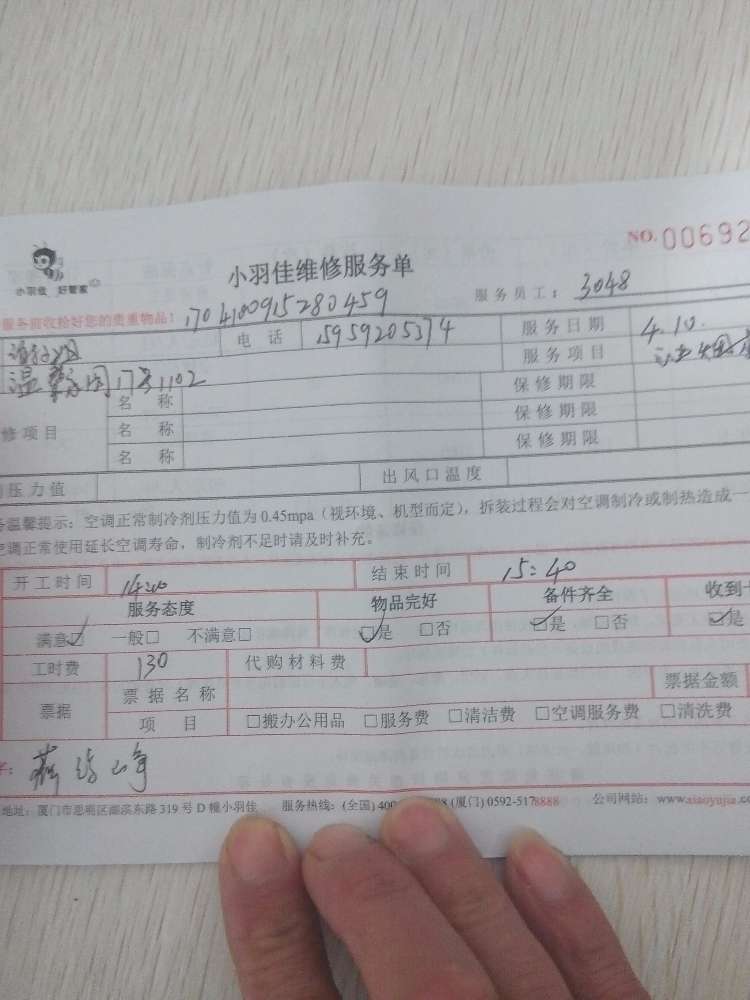 NO. 00692
小羽佳 好管家
小羽佳维修服务单
服务前收拾好您的贵重物品! 1704100915280459
服务员工: 3048
电 话 15959205374 服务日期 4.10.
17号1102 服务项目
保修期限
修项目 名 称
名 称 保修期限
名 称 保修期限
压力值 出风口温度
温馨提示: 空调正常制冷剂压力值为 0.45mpa (视环境、机型而定), 拆装过程会对空调制冷或制热造成一
调正常使用延长空调寿命, 制冷剂不足时请及时补充。
开工时间 14:40 结束时间 15:40
服务态度 物品完好 备件齐全 收到
满意☑ 一般□ 不满意□ ☑是 □否 ☑是 □否 ☑是
工时费 130 代购材料费
票据 票据名称 票据金额
项 目 □搬办公用品 □服务费 □清洁费 □空调服务费 □清洗费
地址: 厦门市思明区湖滨东路 319 号 D 幢小羽佳 服务热线: (全国) 400 8 (厦门) 0592-5178888 公司网站: www.xiaoyujia.c